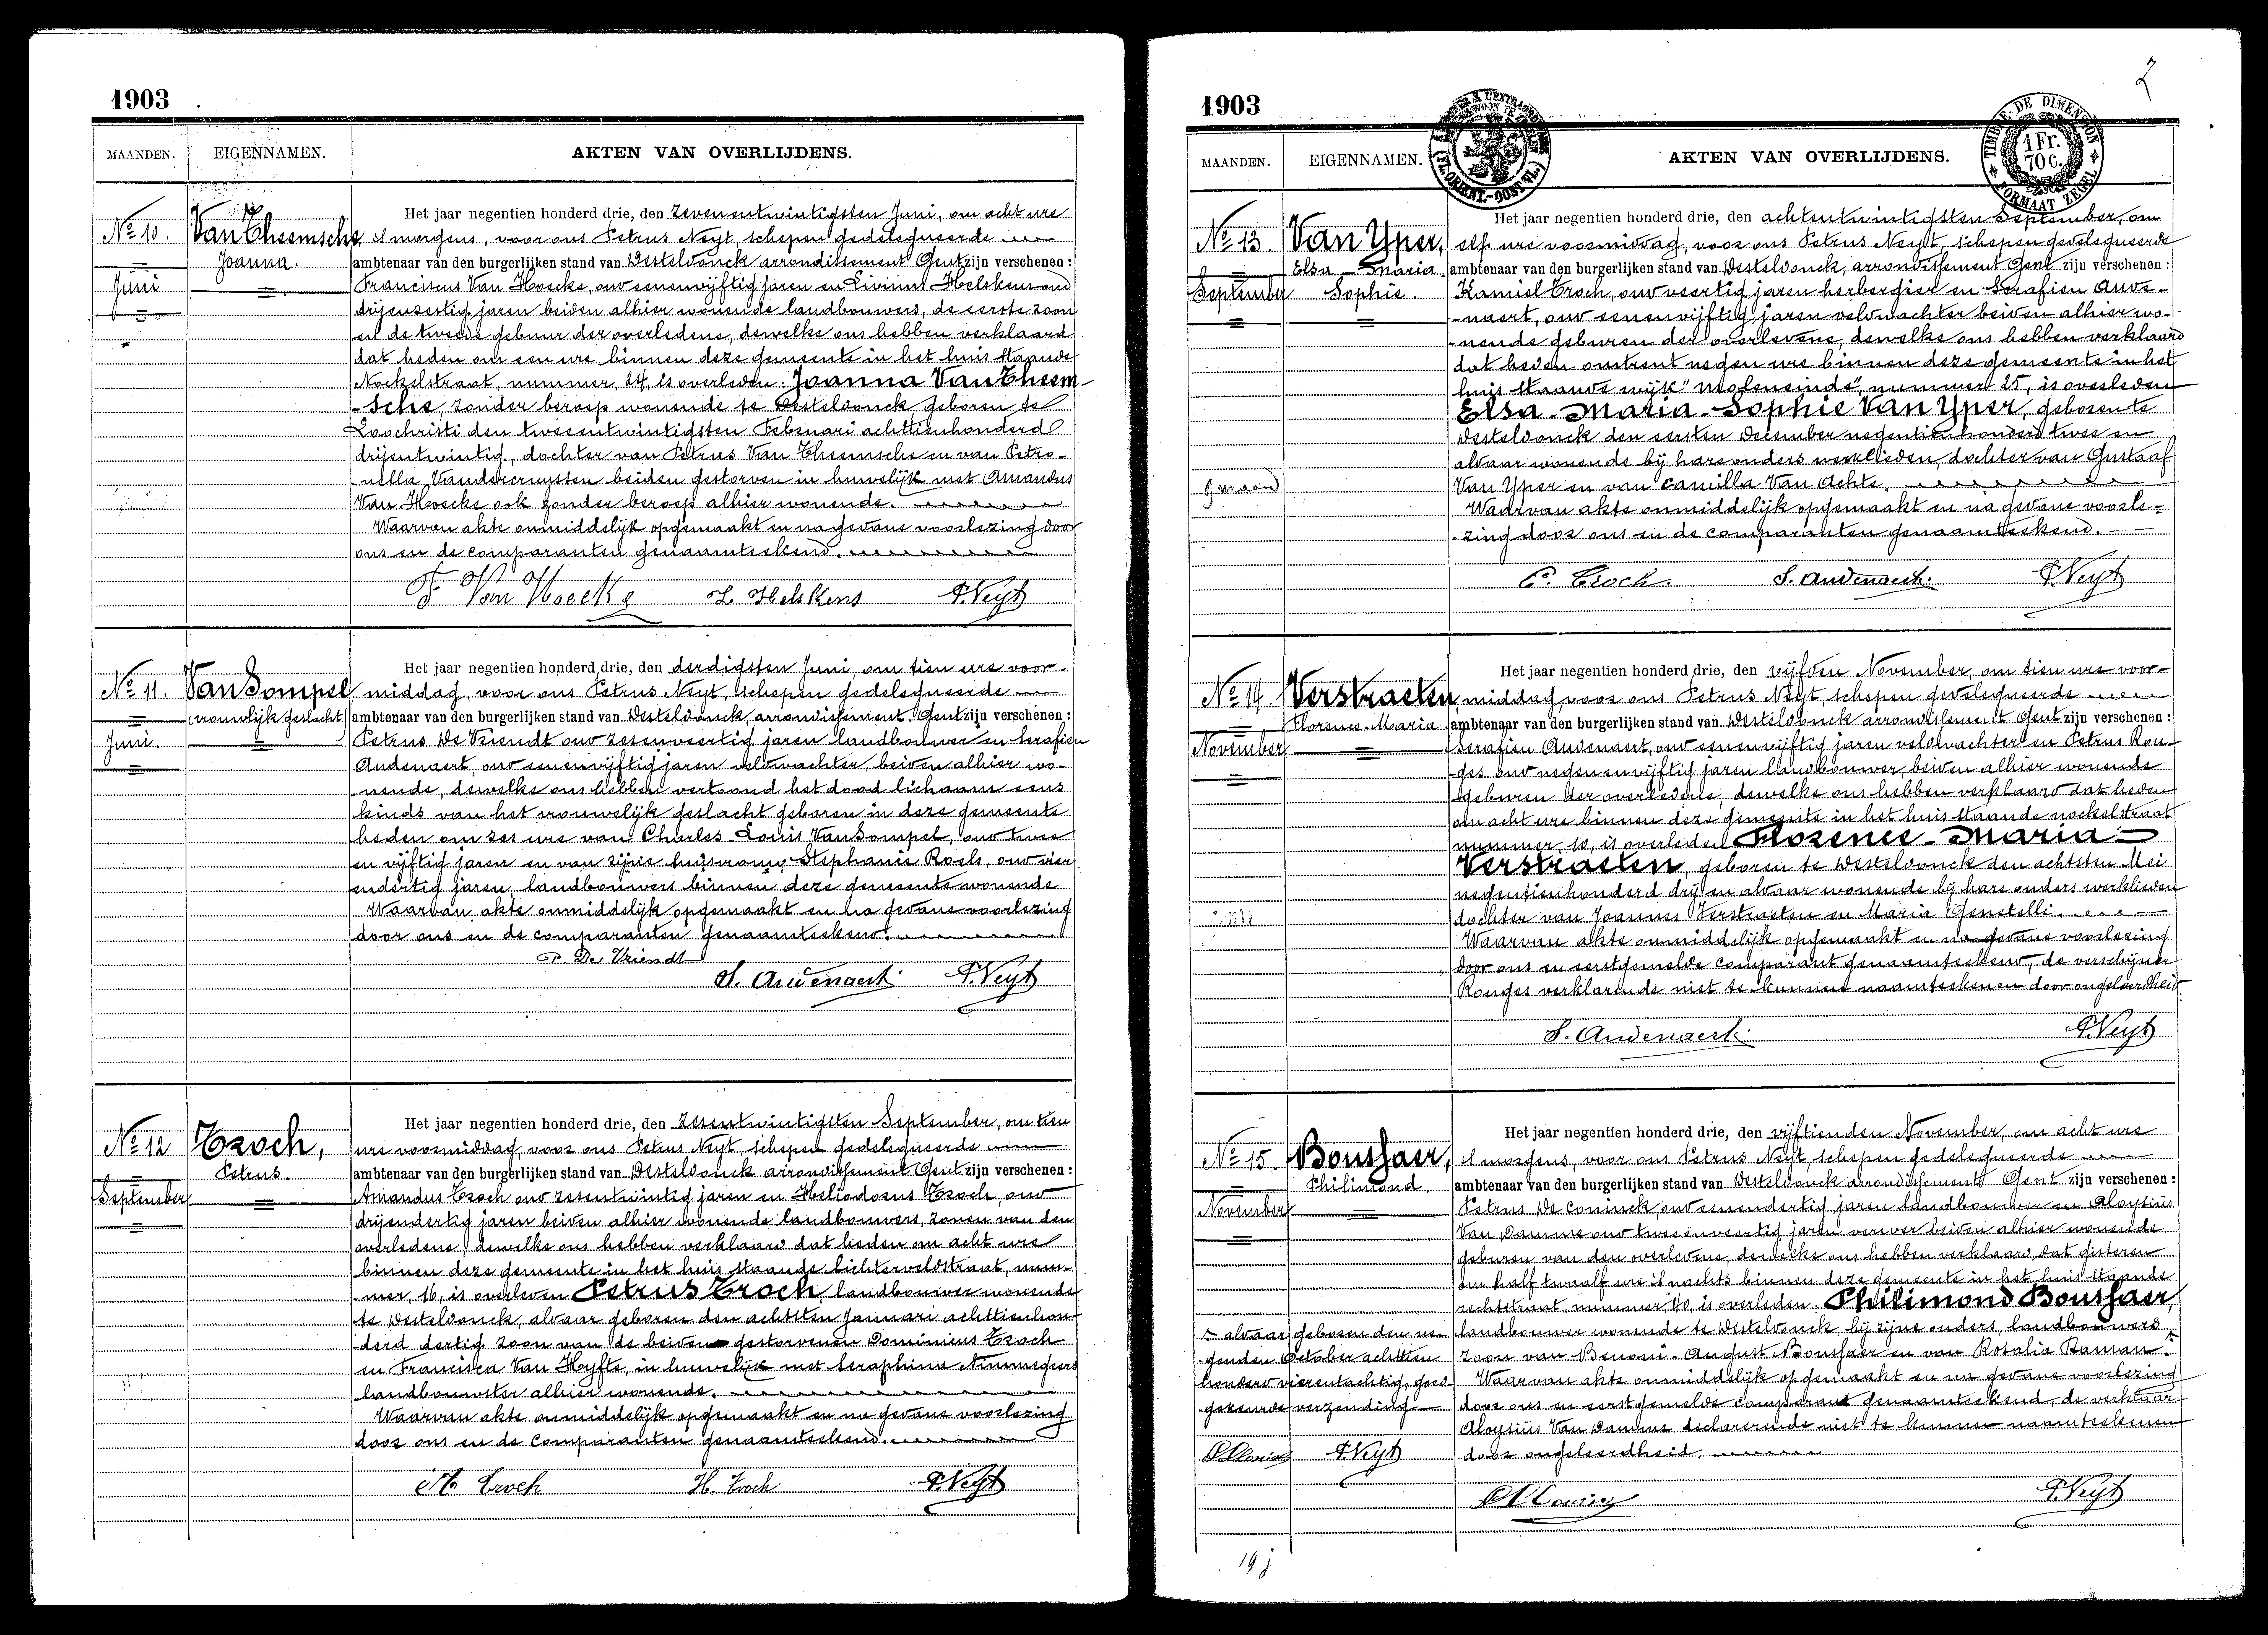 1903
MAANDEN. EIGENNAMEN. AKTEN VAN OVERLIJDENS.
No 10. Van Theemsche Joanna. Juni
Het jaar negentien honderd drie, den zevenentwintigsten Juni, om acht ure
's morgens, voor ons Petrus Neyt, schepen gedelegueerde
ambtenaar van den burgerlijken stand van Desteldonck, arrondissement Gent zijn verschenen:
Franciscus Van Hoecke, oud eenenvijftig jaren en Livinus Helskens oud
drijenzestig jaren beiden alhier wonende landbouwers, de eerste zoon
en de tweede gebuur der overledene, dewelke ons hebben verklaard
dat heden om een ure binnen deze gemeente in het huis staande
Nockelstraat, nummer, 24, is overleden Joanna Van Theem-
-sche, zonder beroep wonende te Desteldonck geboren te
Loochristi den tweeentwintigsten Februari achttienhonderd
drijentwintig, dochter van Petrus Van Theemsche en van Petro-
-nella Vandercruyssen beiden gestorven in huwelijk met Amandus
Van Hoecke ook zonder beroep alhier wonende.
Waarvan akte onmiddelijk opgemaakt en na gedane voorlezing door
ons en de comparanten genaamteekend.
F. Van Hoecke L. Helskens P. Neyt
No 11. Van Sompel (vrouwlijk geslacht) Juni.
Het jaar negentien honderd drie, den derdigsten Juni, om tien ure voor-
middag, voor ons Petrus Neyt, schepen gedelegueerde
ambtenaar van den burgerlijken stand van Desteldonck, arrondissement Gent zijn verschenen:
Petrus De Vriendt oud zesenveertig jaren landbouwer en Serafien
Audenaert, oud eenenvijftig jaren veldwachter, beiden alhier wo-
-nende, dewelke ons hebben vertoond het dood lichaam eens
kinds van het vrouwelijk geslacht geboren in deze gemeente
heden om zes ure van Charles-Louis Van Sompel, oud twee
en vijftig jaren en van zijne huisvrouw Stephanie Roels, oud vier
endertig jaren, landbouwers binnen deze gemeente wonende
Waarvan akte onmiddelijk opgemaakt en na gedane voorlezing
door ons en de comparanten genaamteekend.
P. De Vriendt
S. Audenaert P. Neyt
No 12 Troch, Petrus. September
Het jaar negentien honderd drie, den zesentwintigsten September, om tien
ure voormiddag voor ons Petrus Neyt, schepen gedelegueerde
ambtenaar van den burgerlijken stand van Desteldonck arrondissement Gent zijn verschenen:
Amandus Troch oud zesentwintig jaren en Heliodorus Troch, oud
drijendertig jaren beiden alhier wonende landbouwers, zonen van den
overledene, dewelke ons hebben verklaard dat heden om acht ure
binnen deze gemeente in het huis staande Lichterveldstraat, num-
-mer, 16, is overleden Petrus Troch, landbouwer wonende
te Desteldonck, aldaar geboren den achtsten Januari achttienhon-
derd dertig, zoon van de beiden gestorvenen Dominicus Troch
en Francisca Van Hyfte, in huwelijk met Seraphina Nimmegeers
landbouwster alhier wonende.
Waarvan akte onmiddelijk opgemaakt en na gedane voorlezing
door ons en de comparanten genaamteekend.
A. Troch H. Troch P. Neyt
2
1903
MAANDEN. EIGENNAMEN. AKTEN VAN OVERLIJDENS.
(FL. ORIENT.-OOST VL.)
TIMBRE DE DIMENSION 1 Fr. 70 c. FORMAAT ZEGEL
No 13. Van Yper, Elsa-Maria Sophie. September
Het jaar negentien honderd drie, den achtentwintigsten September, om
elf ure voormiddag, voor ons Petrus Neyt, schepen gedelegueerde
ambtenaar van den burgerlijken stand van Desteldonck, arrondissement Gent zijn verschenen:
Kamiel Troch, oud veertig jaren herbergier en Serafien Aude-
-naert, oud eenenvijftig jaren veldwachter beiden alhier wo-
-nende geburen der overledene, dewelke ons hebben verklaard
dat heden omtrent negen ure binnen deze gemeente in het
huis staande wijk "Moleneinde", nummer 25, is overleden
Elsa-Maria-Sophie Van Yper, geboren te
Desteldonck den eersten December negentienhonderd twee en
aldaar wonende bij hare ouders werklieden, dochter van Gustaaf
Van Yper en van Camilla Van Achte.
9 maand
Waarvan akte onmiddelijk opgemaakt en na gedane voorle-
-zing door ons en de comparanten genaamteekend.
C. Troch S. Audenaert. P. Neyt
No 14. Verstraeten Florence-Maria. November
Het jaar negentien honderd drie, den vijfden November, om tien ure voor-
middag voor ons Petrus Neyt, schepen gedelegueerde
ambtenaar van den burgerlijken stand van Desteldonck arrondissement Gent zijn verschenen:
Serafien Audenaert, oud eenenvijftig jaren veldwachter en Petrus Ron-
-ges oud negenenvijftig jaren landbouwer, beiden alhier wonende
geburen der overledene, dewelke ons hebben verklaard dat heden
om acht ure binnen deze gemeente in het huis staande nockelstraat
nummer, 10, is overleden Florence-Maria
Verstraeten, geboren te Desteldonck den achtsten Mei
negentienhonderd drij en aldaar wonende bij hare ouders werklieden
dochter van Joannes Verstraeten en Maria Genetelli.
Waarvan akte onmiddelijk opgemaakt en na gedane voorlezing
door ons en eerstgemelde comparant genaamteekend, de verschijner
Ronges verklarende niet te kunnen naamteekenen door ongeleerdheid.
S. Audenaert. P. Neyt
No 15. Boussaer, Philimond. November
Het jaar negentien honderd drie, den vijftienden November, om acht ure
's morgens, voor ons Petrus Neyt, schepen gedelegueerde
ambtenaar van den burgerlijken stand van Desteldonck arrondissement Gent zijn verschenen:
Petrus De Coninck oud eenendertig jaren landbouwer en Aloysiüs
Van Damme oud tweeenveertig jaren verver beiden alhier wonende
geburen van den overledene, dewelke ons hebben verklaard, dat gisteren
om half twaalf ure 's nachts binnen deze gemeente in het huis staande
rechtstraat nummer 40, is overleden Philimond Boussaer,
landbouwer wonende te Desteldonck, bij zijne ouders, landbouwers
zoon van Benoni-August Boussaer en van Rosalia Baman.
Waarvan akte onmiddelijk opgemaakt en na gedane voorlezing
door ons en eerstgemelde comparant genaamteekend, de verklaar-
Aloysiüs Van Damme declarerende niet te kunnen naamteekenen
door ongeleerdheid.
aldaar geboren den ne-
genden October achttien
honderd vierentachtig, goed-
gekeurde verzending
P. Neyt
P. Neyt
19 j